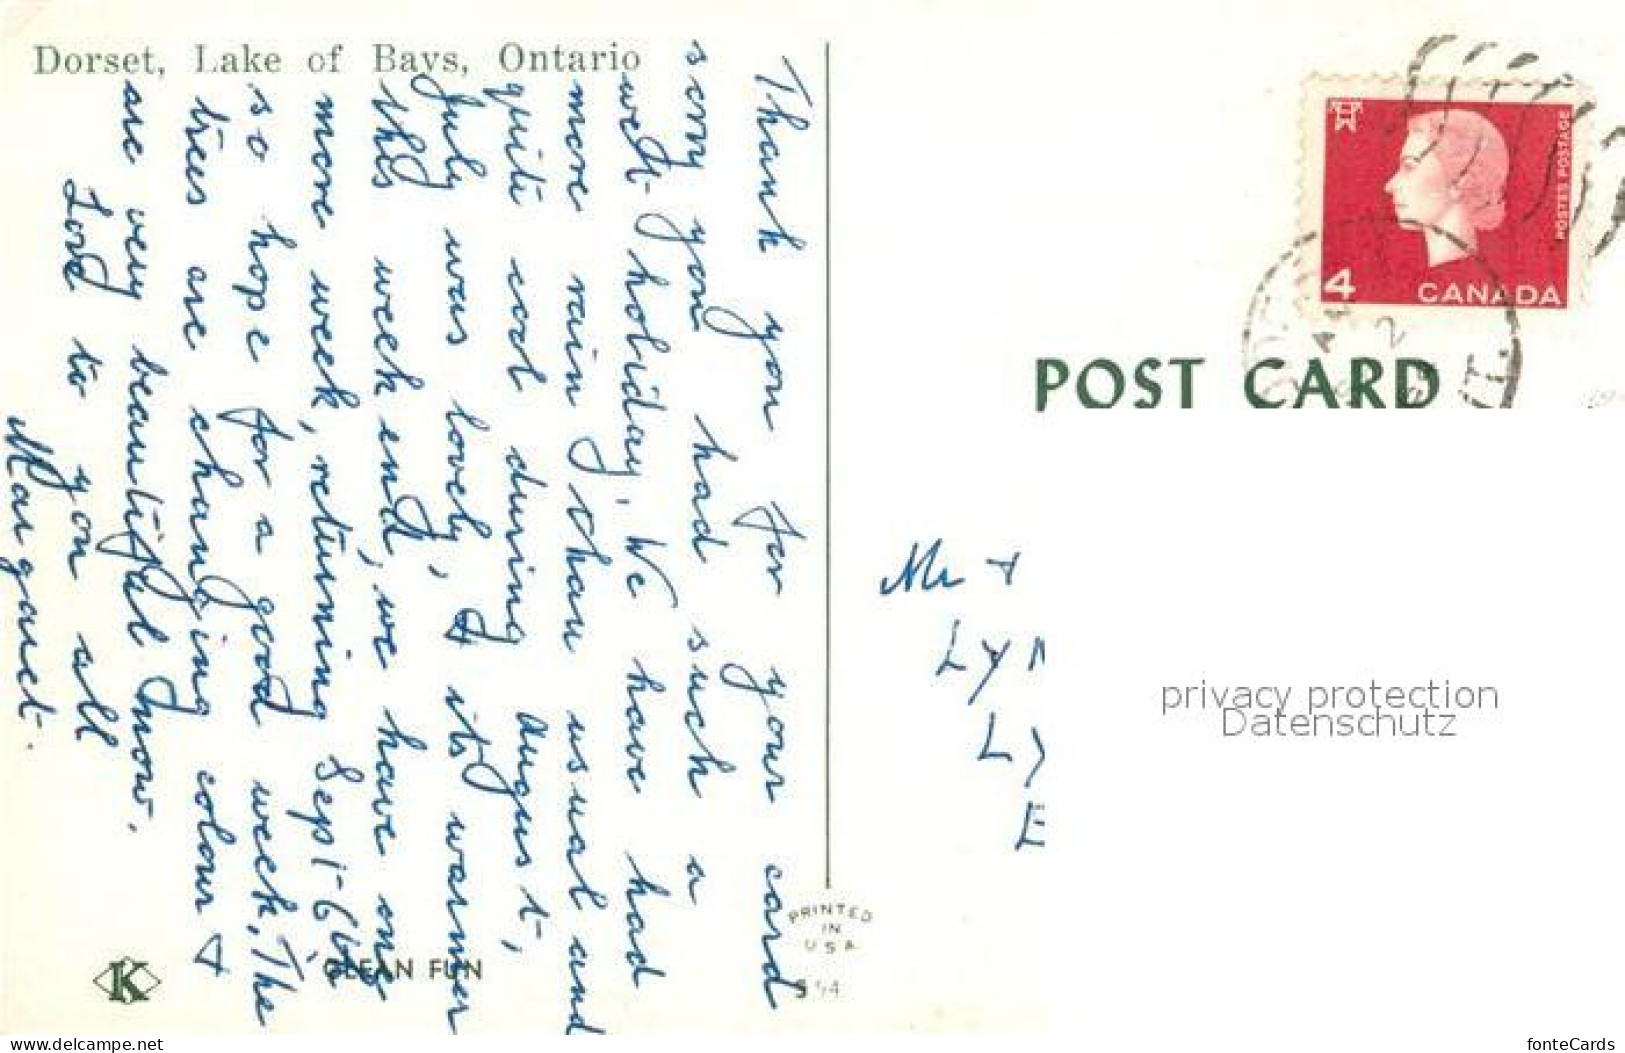 Dorset, Lake of Bays, Ontario
Thank you for your card
sorry you had such a
wet holiday, We have had
more rain than usual and
quite cool during August,
July was lovely, & its warmer
this week end, we have one
more week, returning Sept-6th
so hope for a good week, The
trees are changing colour &
are very beautiful now.
Love to you all
Margaret.
K
CLEAN FUN
PRINTED
IN
USA
POSTES POSTAGE
4
CANADA
POST CARD
Mr +
LY
LY
E
privacy protection
Datenschutz
www.delcampe.net
fonteCards